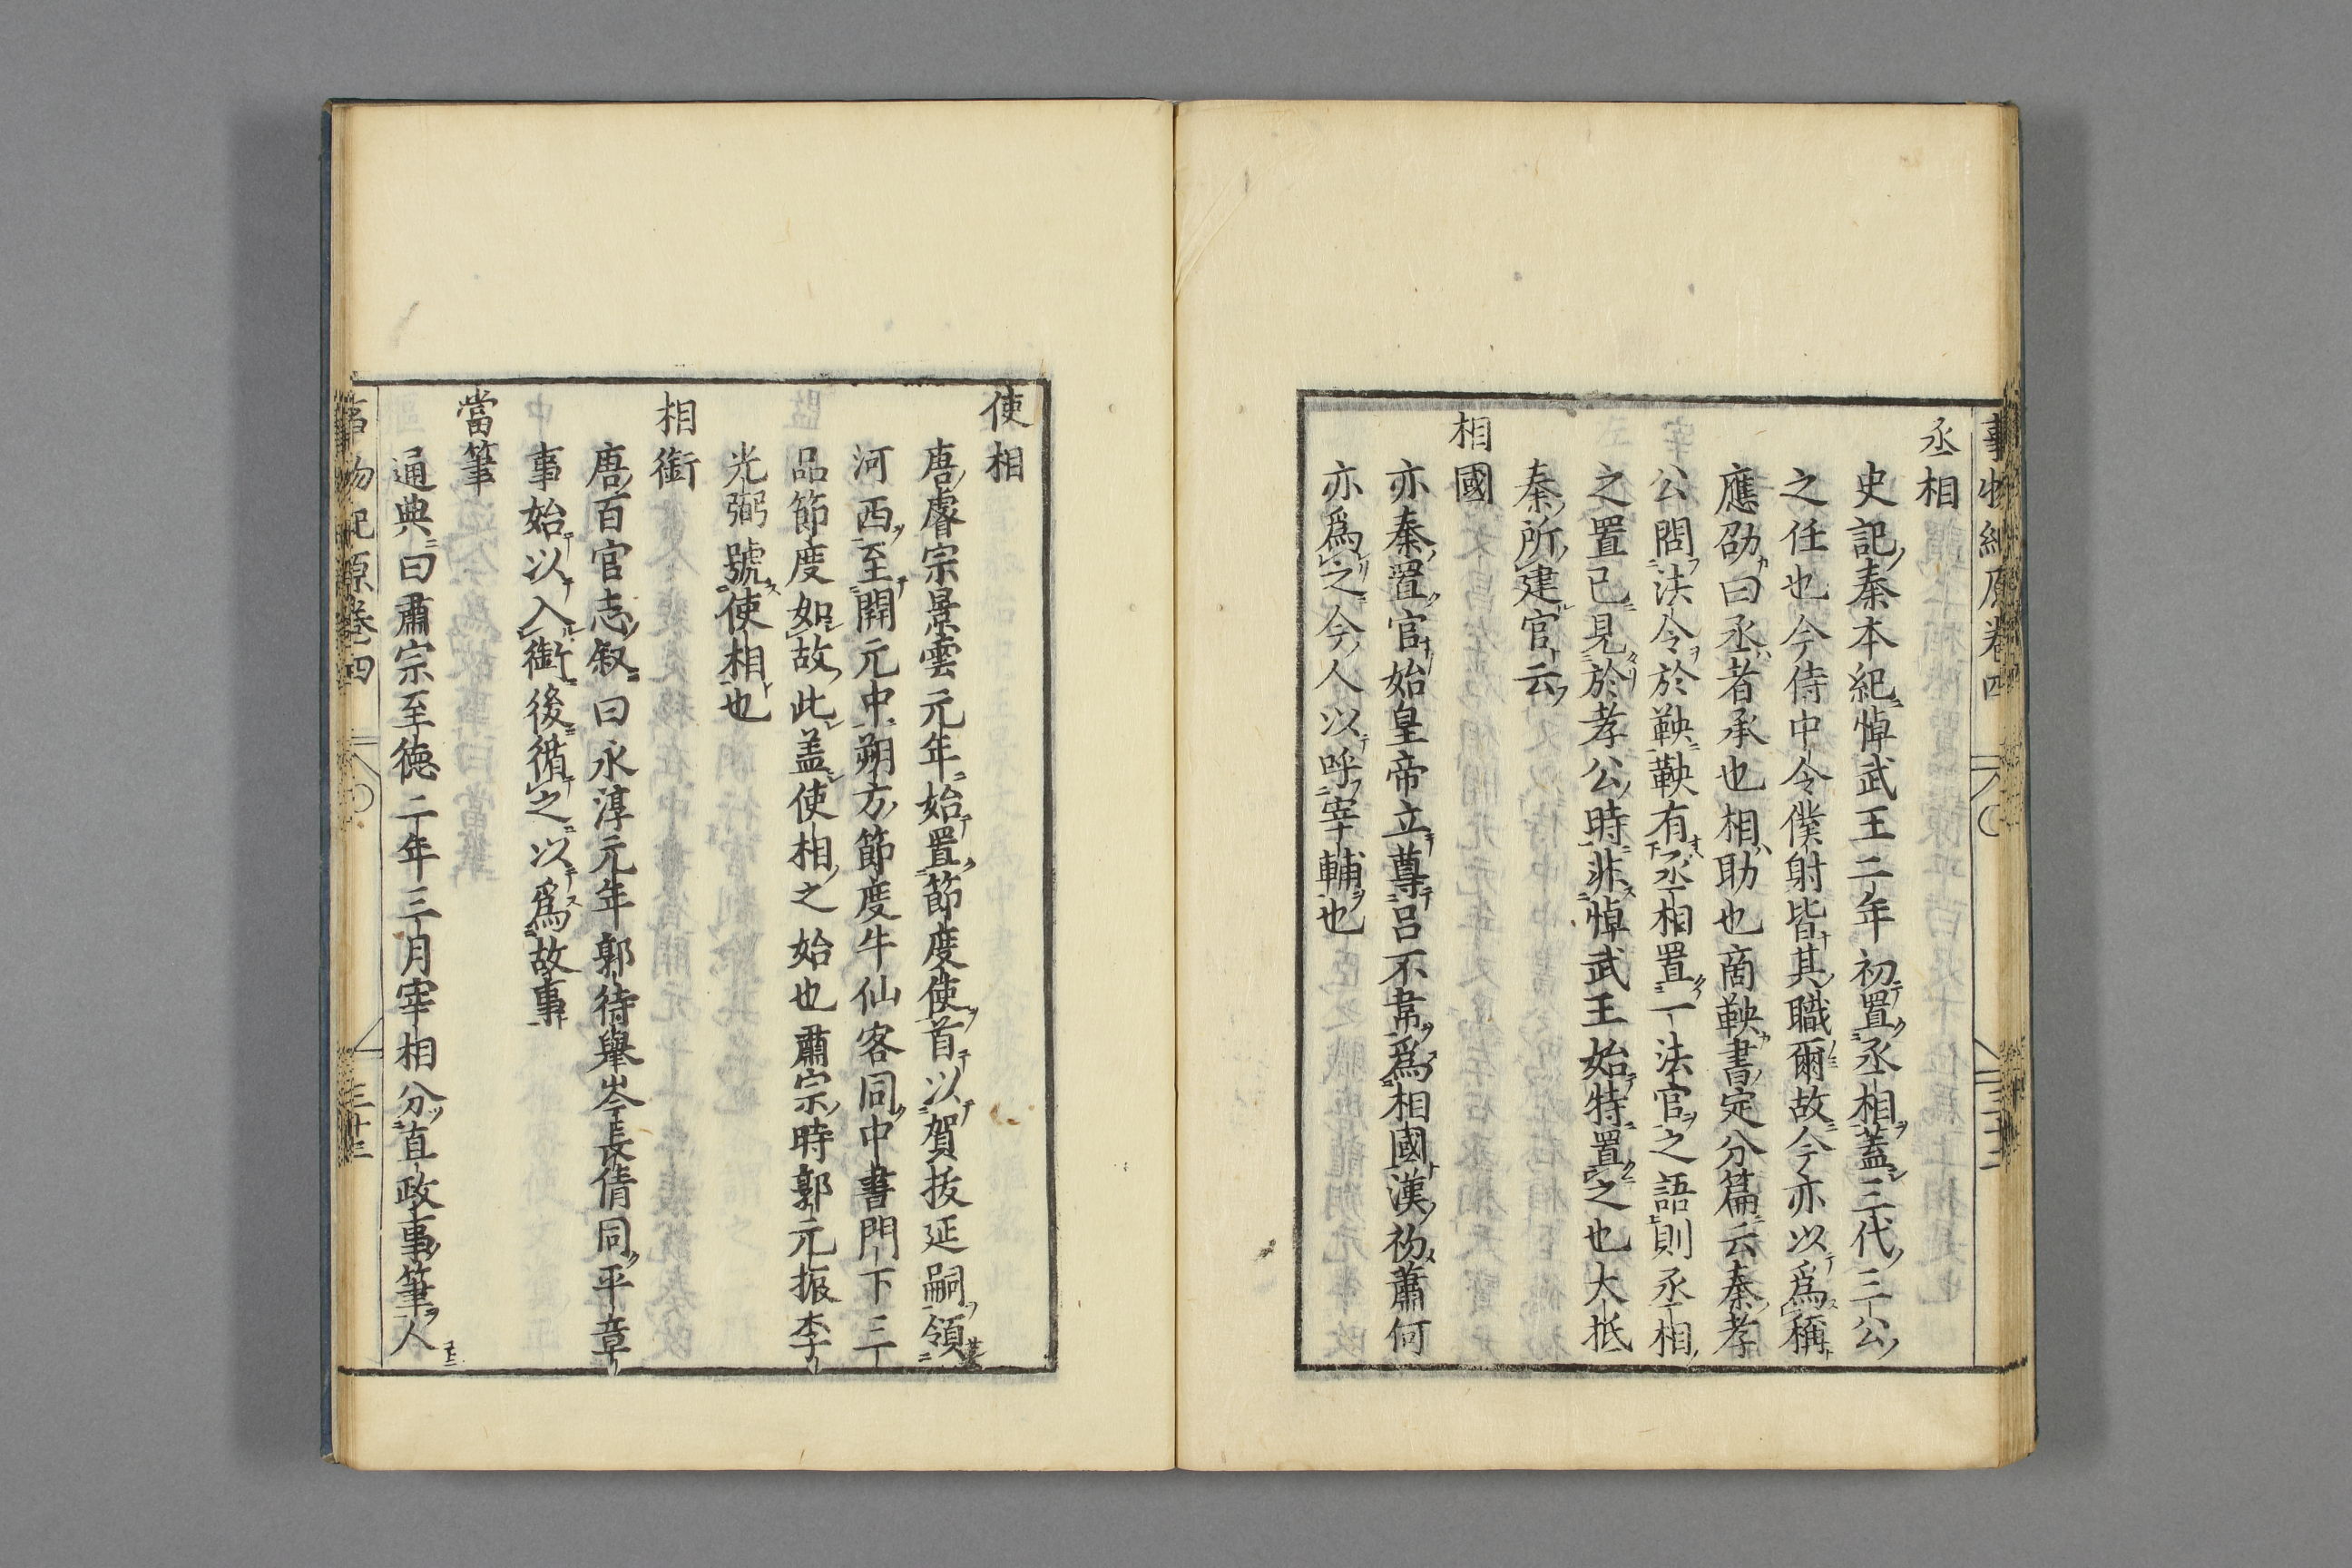 事物紀原卷四
丞相
史記秦本紀悼武王二年初置丞相蓋三代三公
之任也今侍中令僕射皆其職爾故今亦以爲稱
應劭曰丞者承也相助也商鞅書定分篇云秦孝
公問法令於鞅鞅有丞相置一法官之語則丞相
之置已見於孝公時非悼武王始特置之也大抵
秦所建官云
相國
亦秦置官始皇帝立尊呂不韋爲相國漢初蕭何
亦爲之今人以呼宰輔也
使相
唐睿宗景雲元年始置節度使首以賀拔延嗣領
河西至開元中朔方節度牛仙客同中書門下三
品節度如故此盖使相之始也肅宗時郭元振李
光弼號使相也
相銜
唐百官志叙曰永淳元年郭待舉岑長倩同平章
事始以入銜後循之以爲故事
當筆
通典曰肅宗至德二年三月宰相分直政事筆人
事物紀原卷四 三十三